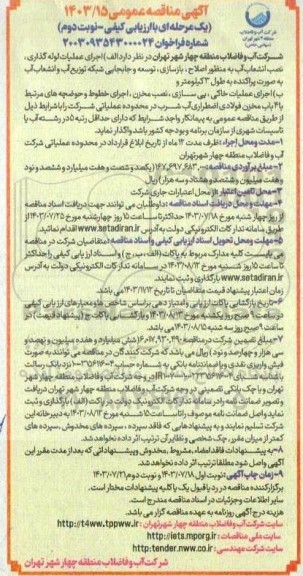 آگهی مناقصه عمومی ۱۴۰۳/۱۵
(یک مرحله ای با ارزیابی کیفی - نوبت دوم)
شماره فراخوان ۲۰۰۳۰۹۳۵۴۳۰۰۰۰۲۴
شرکت آب و فاضلاب منطقه چهار شهر تهران در نظر دارد الف) اجرای عملیات لوله گذاری،
نصب انشعاب آب به منظور اصلاح، بازسازی، توسعه و جابجایی شبکه توزیع آب و انشعاب آب
به صورت پراکنده به طول ۳ کیلومتر و
ب) اجرای عملیات خاکی، پی سازی، نصب مخزن، اجرای خطوط و حوضچه های مرتبط
با ۴ باب مخزن فولادی اضطراری آب شرب در محدوده عملیاتی شرکت را با شرایط ذیل
از طریق مناقصه عمومی به پیمانکار واجد شرایط که دارای حداقل رتبه ۵ در رشته آب یا
تاسیسات شهری از سازمان برنامه و بودجه کشور باشد واگذار نماید.
۱- مدت و محل اجراء: ظرف مدت ۱۲ ماه از تاریخ ابلاغ قرارداد در محدوده عملیاتی شرکت
آب و فاضلاب منطقه چهار شهر تهران
۲- مبلغ برآوردی مناقصه: ۱۶۷,۶۹۷,۶۸۳,۰۰۰ (یکصد و شصت و هفت میلیارد و ششصد و نود
و هفت میلیون و ششصد و هشتاد و سه هزار) ریال
۳- محل تامین اعتبار: از محل اعتبارات جاری شرکت
۴- مهلت و محل دریافت اسناد مناقصه: داوطلبان می توانند جهت دریافت اسناد مناقصه
از روز چهار شنبه مورخ ۱۴۰۳/۷/۱۸ حداکثر تا ساعت ۱۵ روز چهارشنبه مورخ ۱۴۰۳/۰۷/۲۵ از
طریق سامانه تدارکات الکترونیکی دولت به آدرس www.setadiran.ir اقدام نمایند.
۵- مهلت و محل تحویل اسناد ارزیابی کیفی و اسناد مناقصه: متقاضیان شرکت در مناقصه
می بایست کلیه مدارک مربوط به پاکات (الف، ب، ج) و اسناد ارزیابی کیفی را حداکثر
تا ساعت ۱۵ روز شنبه مورخ ۱۴۰۳/۰۸/۱۲ در سامانه تدارکات الکترونیکی دولت به آدرس
www.setadiran.ir بارگذاری و ثبت نمایند.
زمان اعتبار پیشنهاد قیمت متقاضیان تا تاریخ ۱۴۰۳/۱۱/۱۲ می باشد.
۶- تاریخ بازگشایی پاکات ارزیابی و امتیاز دهی براساس شاخص ها و معیارهای ارزیابی کیفی
در ساعت ۹ صبح روز یکشنبه مورخ ۱۴۰۳/۰۸/۱۳ و بازگشایی پاکات ج (پیشنهاد قیمت) در
ساعت ۹ صبح روز سه شنبه ۱۴۰۳/۰۸/۱۵ می باشد.
۷- مبلغ تضمین شرکت در مناقصه: ۶,۰۱۷,۹۳۰,۴۹۰ (شش میلیارد و هفده میلیون و نهصد و
سی هزار و چهارصد و نود) ریال می باشد که شرکت کنندگان در مناقصه می توانند به صورت
فیش واریزی نقدی و یا ضمانتنامه بانکی به شماره حساب
در وجه شرکت آب و فاضلاب منطقه چهار شهر
تهران و یا چک بانکی تضمینی در وجه شرکت آب و فاضلاب منطقه چهار شهر تهران دریافت
و تصویر ضمانت نامه را در سامانه تدارکات الکترونیک دولت در پاکت (الف) بارگذاری و ثبت
نماید و اصل ضمانت نامه موصوف را تا ساعت ۱۵ شنبه مورخ ۱۴۰۳/۰۸/۱۲ به دبیرخانه این
شرکت تسلیم نمایند و به پیشنهادهایی که فاقد سپرده، سپرده های مخدوش، سپرده های
کمتر از میزان مقرر، چک شخصی و نظایر آن ترتیب اثر داده نخواهد شد.
۸- به پیشنهادات فاقد امضاء، مشروط، مخدوش و پیشنهاداتی که بعد از مدت مقرر این
آگهی واصل شود مطلقا ترتیب اثر داده نخواهد شد.
۹- زمان چاپ آگهی: نوبت اول ۱۴۰۳/۰۷/۱۸ و نوبت دوم ۱۴۰۳/۰۷/۲۱
برگزار کننده مناقصه در رد یا قبول یک یا کلیه پیشنهادات مختار است.
سایر اطلاعات و جزئیات در اسناد مناقصه مندرج است.
هزینه درج آگهی روزنامه به عهده مناقصه گزار می باشد.
سایت شرکت آب و فاضلاب منطقه چهار شهر تهران: http://t4ww.tppww.ir
سایت ملی مناقصات: http://iets.mporg.ir
سایت شرکت مهندسی: http:tender.nww.co.ir
شرکت آب و فاضلاب منطقه چهار شهر تهران